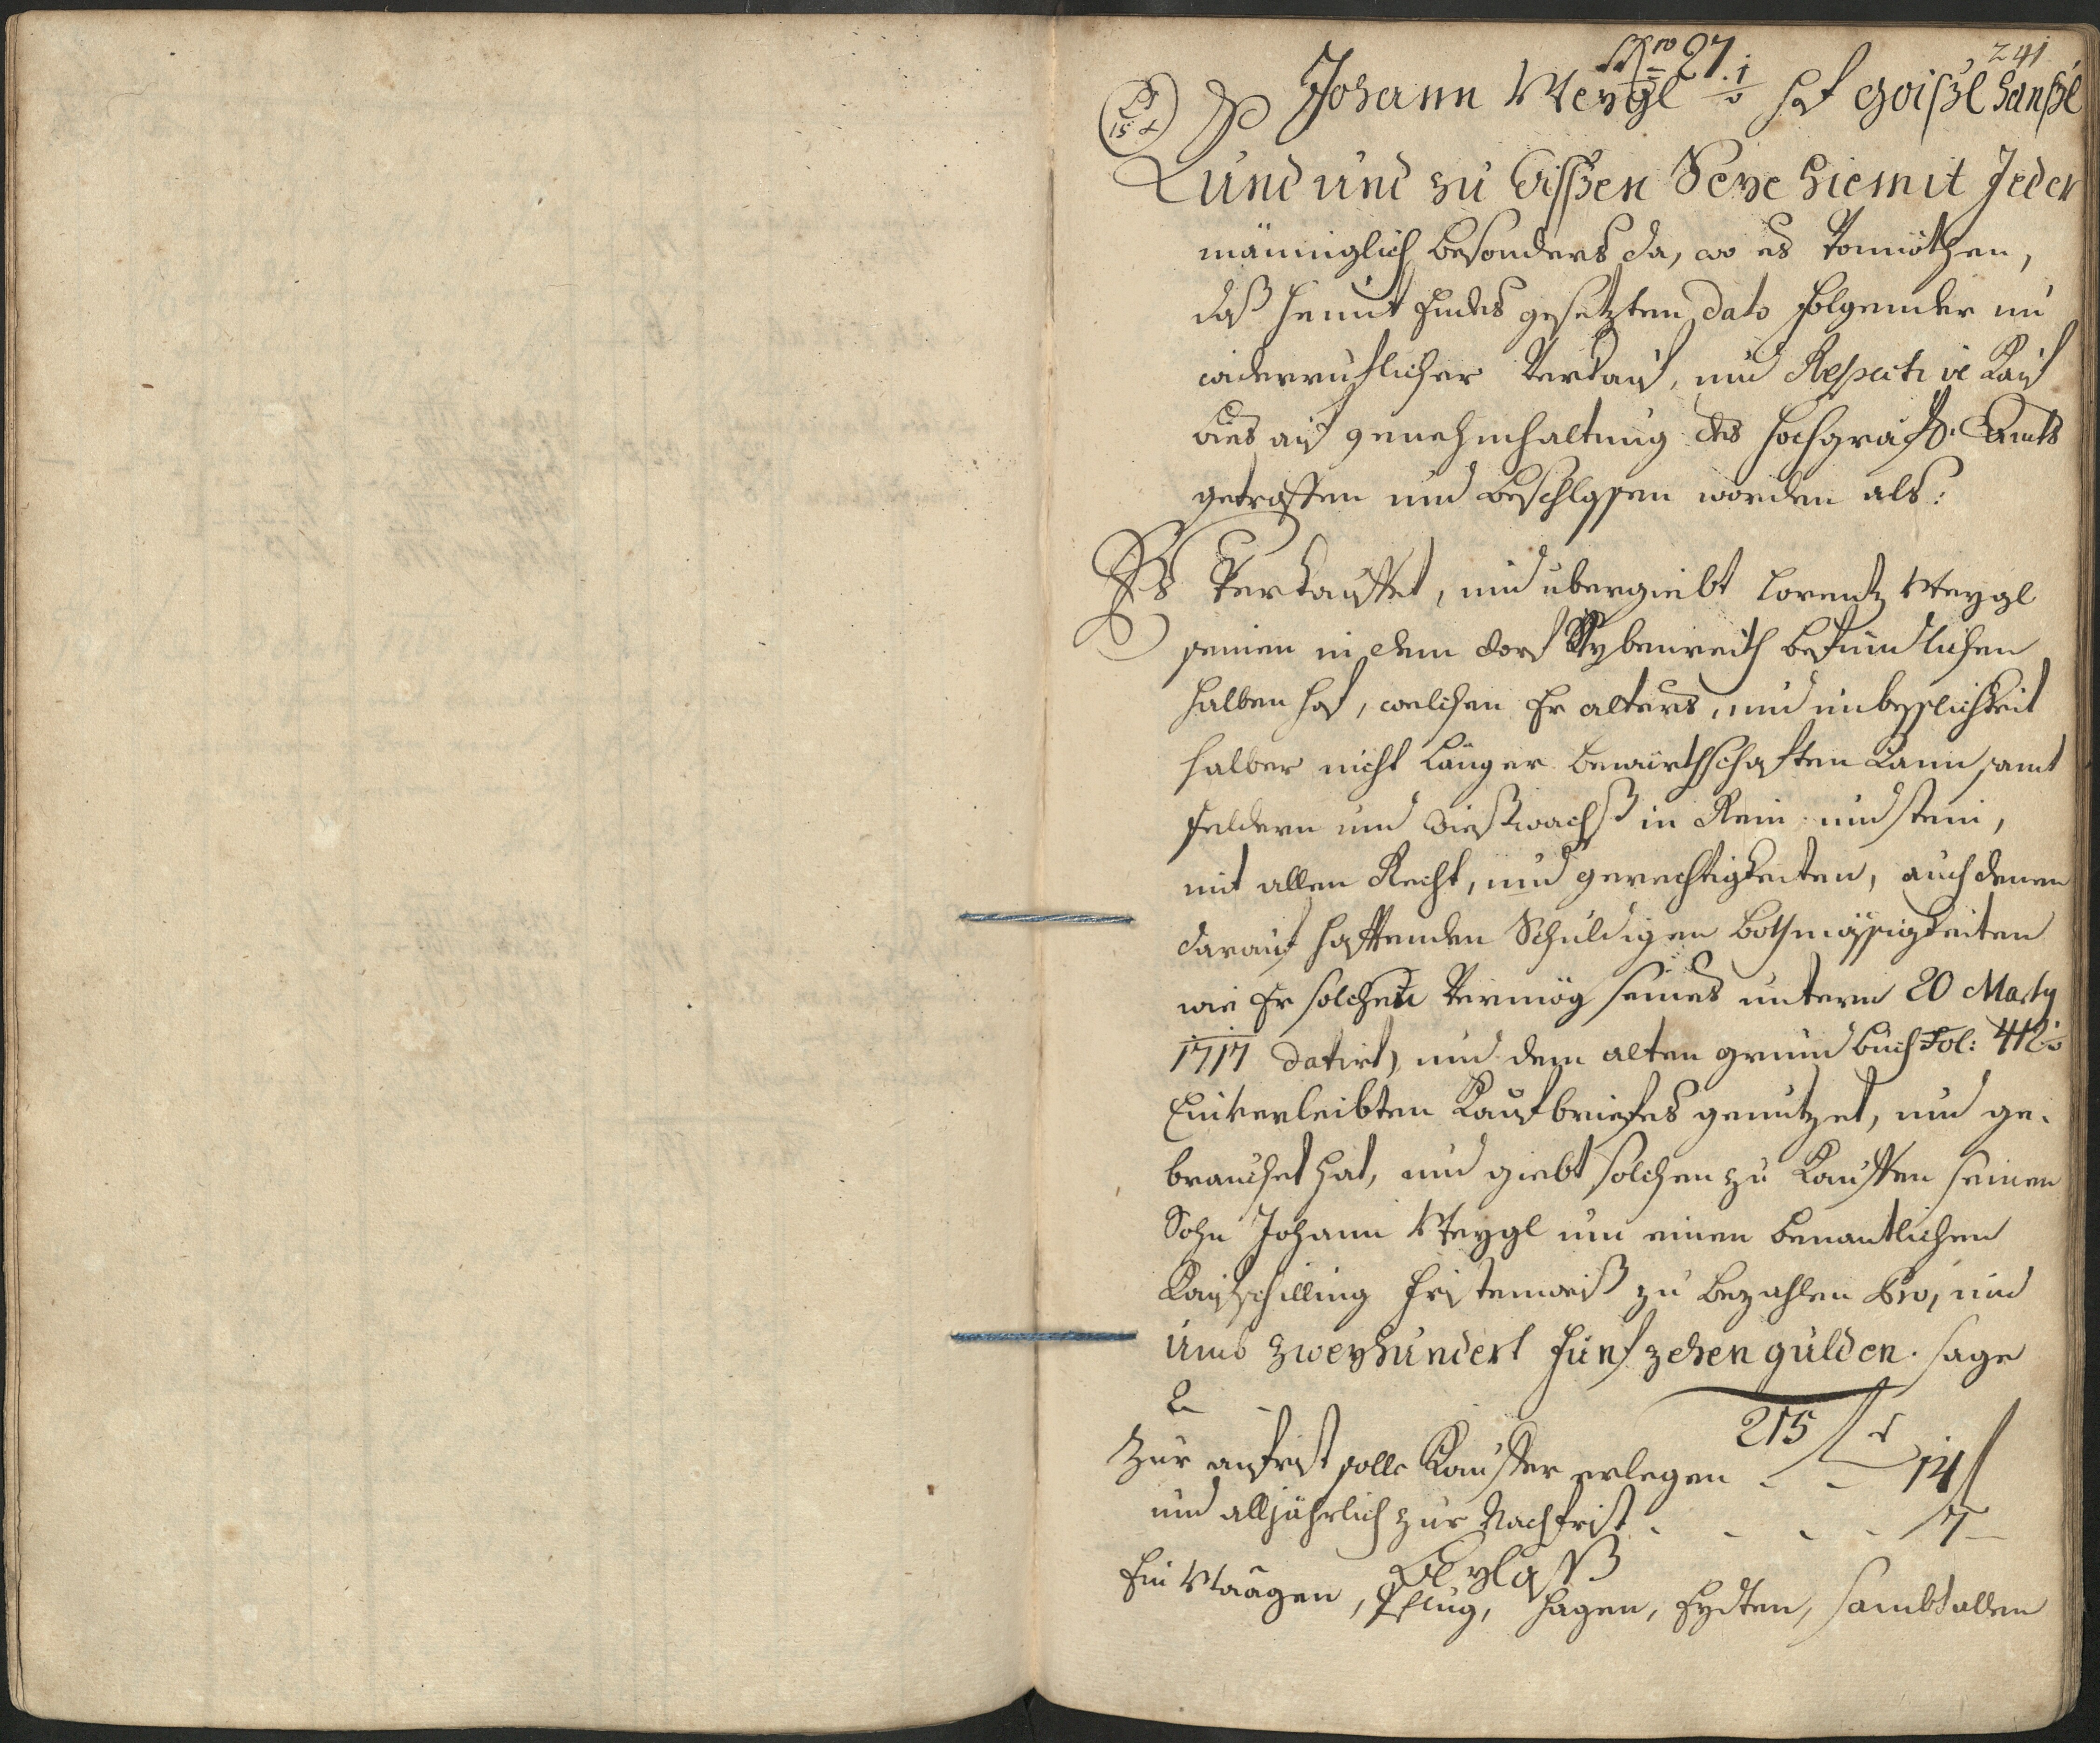 241
Nro 27.
15 x
Johann Weygl ½ Hof Goißl Hanßl
Kund und zu Wißen Seye hiemit Jeder
männiglich besonders da, wo es Vonnöthen,
daß heunt Endes gesetzten Dato folgender un
wiederruflicher Verkauf, und Respective Kauf
bies auf genehmhaltung des hochgräfl. Ambts
getroffen und beschlossen worden als:
Es Verkauffet, und übergiebt Lorentz Weygl
seinen in dem dorf befündlichen
halben hof, welchen Er alters, und unbesslichkeit
halber nicht länger bewürthschaften kann samt
feldern und Wießwachß in Rein und stein,
mit allen Recht, und gerechtigkeiten, auch denen
darauf hafftenden Schuldigen bothmässigkeiten
wie Er solchen Vermög seines unterm 20 Marty
1717 datirt, und dem alten grund buch Fol: 412
Einverleibten Kaufbriefes genutzet, und ge-
brauchet hat, und giebt solchen zu Kauffen seinen
Sohn Johann Weygl um einen benantlichen
Kaufschilling fristenweiß zu bezahlen Pro, und
umb zweyhundert fünfzehen gulden. sage
215 f
Zur anfrist solle Kauffer erlegen - - 14 f
und alljährlich zur Nachfrist - - - - 7 -
Beylaß
Ein Waagen, Pflug, Hagen, Eydten, sambt allen